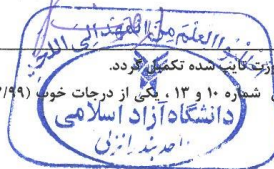 اطلبوا العلم من المهد الی اللحد
صورت تایپ شده تکمیل گردد.
شماره ۱۰ و ۱۳ ، یکی از درجات خوب (
دانشگاه آزاد اسلامی
واحد بندر انزلی